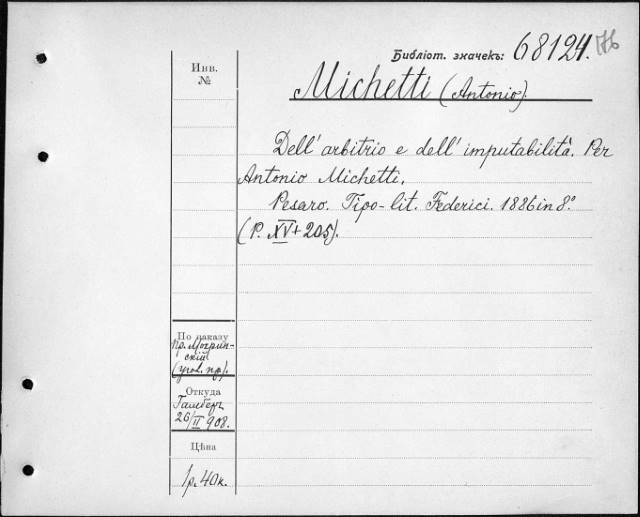 Библіот. значекъ: 68124. 176
Инв.
№
Michetti (Antonio).
Dell' arbitrio e dell' imputabilità. Per
Antonio Michetti.
Pesaro. Tipo-lit. Federici. 1886 in 8º
(P. XV + 205).
По заказу
пр.
скій
(угол. пр).
Откуда
26/II 908.
Цѣна
1р. 40к.